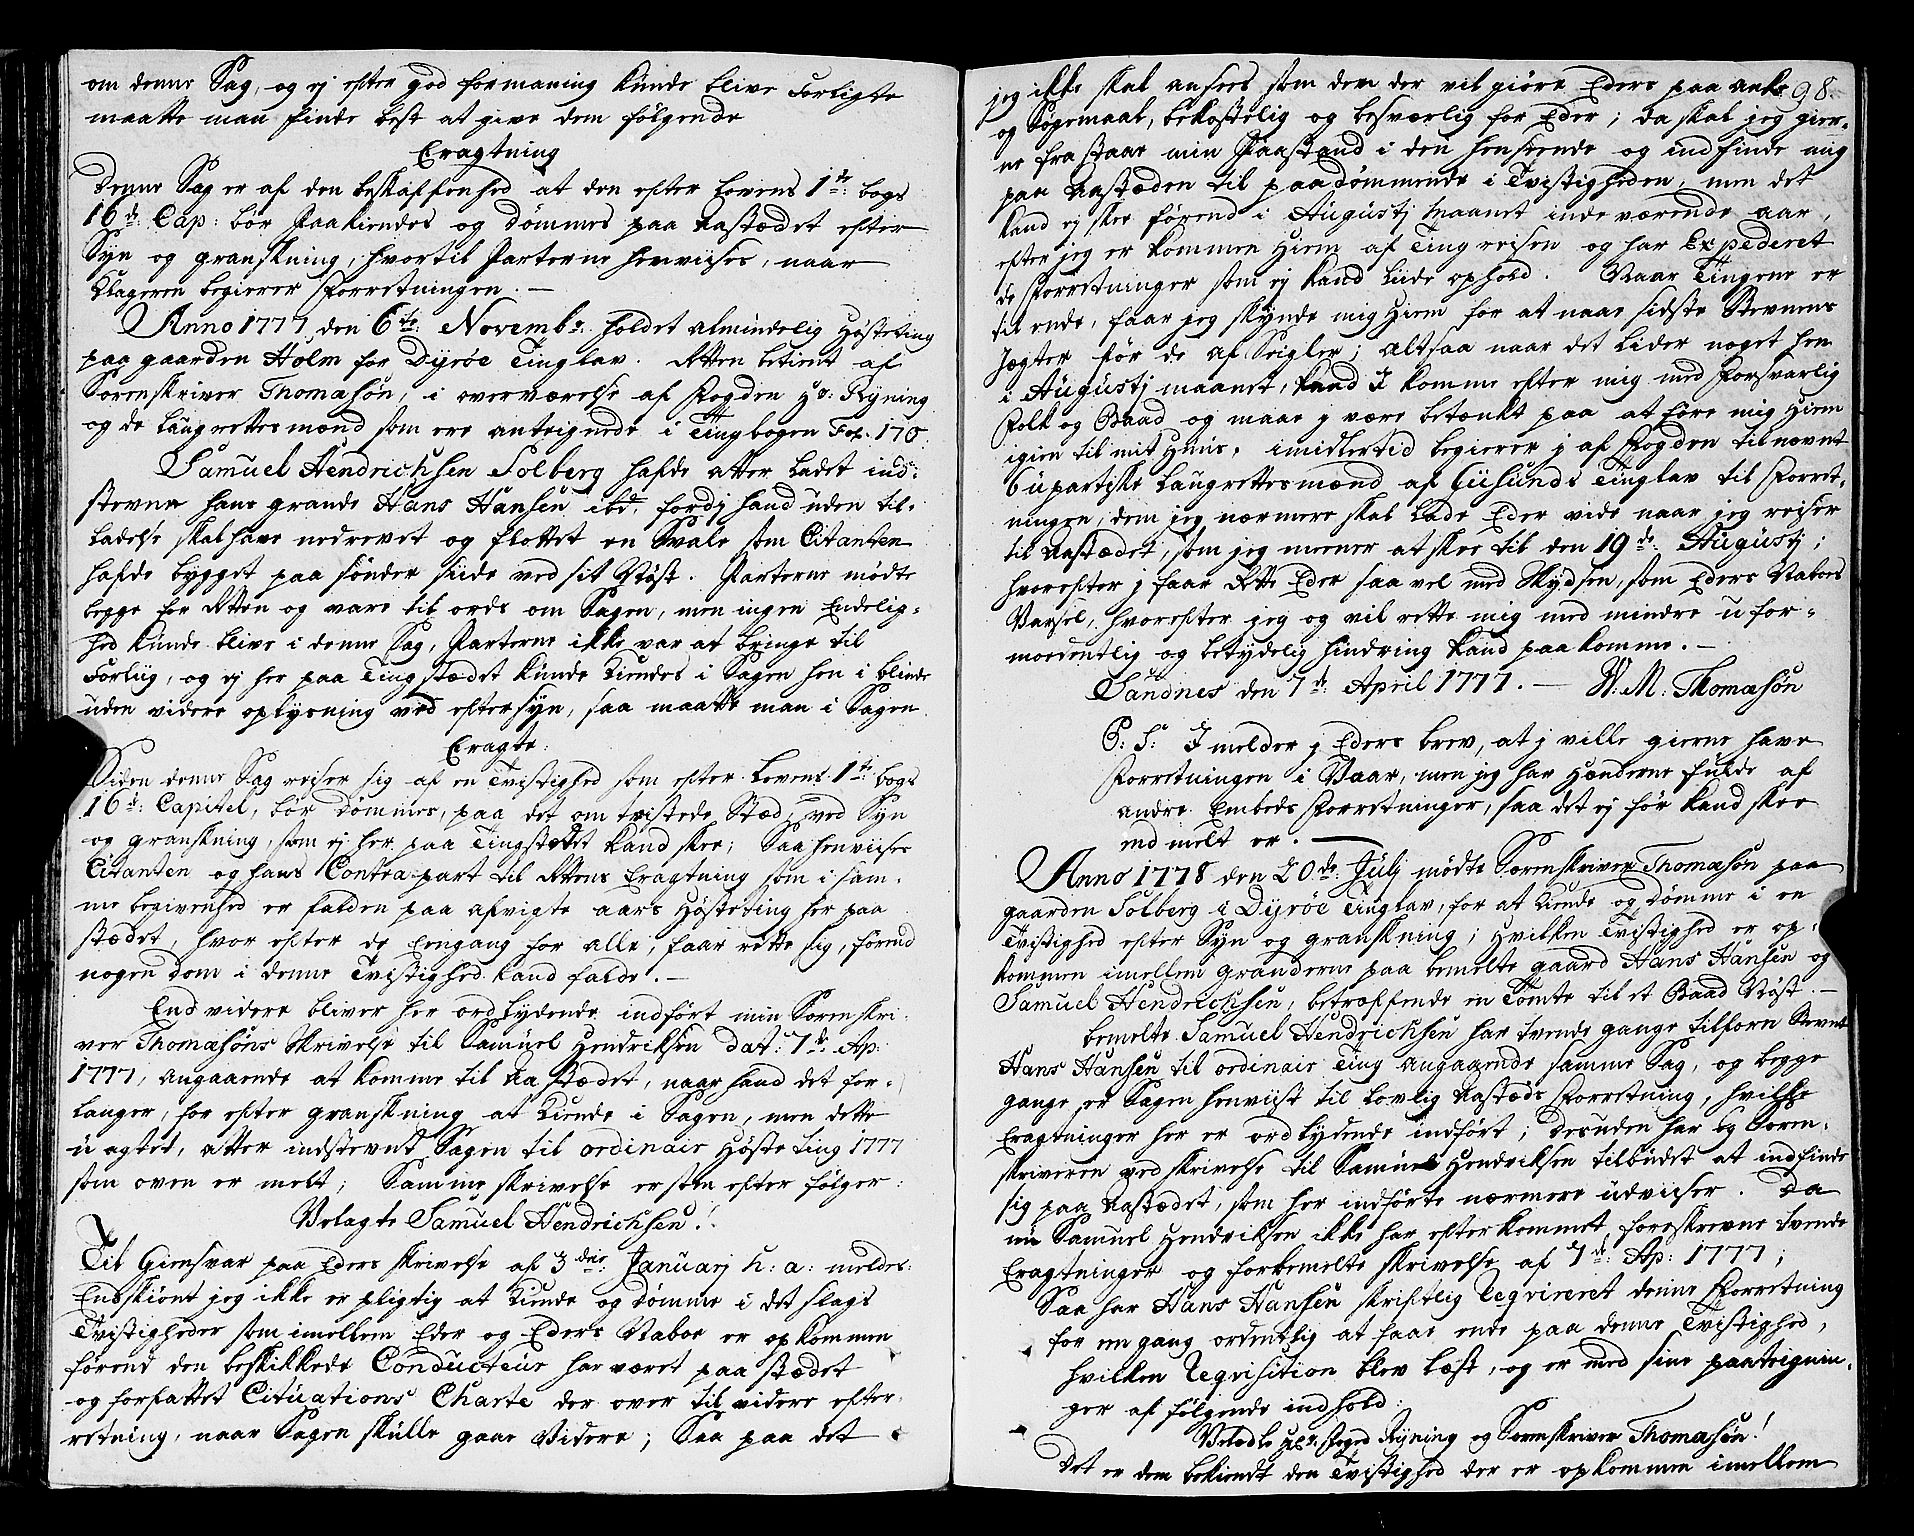 om denne Sag, og ej efter god formaning kunde blive forligte
maatte man finde best at give dem følgende
Eragtning
Denne Sag er af den beskaffenhed at den efter Lovens 1te bogs
16de Cap: bør Paakiendes og dømmes paa Aastædet efter
Syn og granskning, hvortil Parterne henviises, naar
Klageren begierer Forretningen. —
Anno 1777 den 6te Novembr. holdet almindelig Høsteting
paa gaarden Holm for Dyrøe Tinglav. Retten betient af
Sorenskriver Thomæsøn, i overværelse af Fogden Hr. Ryning
og de Laugrettesmænd som ere antegnede i Tingbogen Fol. 170.
Samuel Hendrichsen Solberg hafde atter ladet ind-
stevne hans grande Hans Hansen ibd. fordj hand uden til-
ladelse skal have nedrevet og fløttet en Svale som Citanten
hafde bygget paa sønder siide ved sit Nøst. Parterne mødte
begge for Retten og vare til ords om Sagen, men ingen Endelig-
hed kunde blive i denne Sag, Parterne ikke var at bringe til
Forliig, og ej her paa Tingstædet kunde kiendes i Sagen hen i blinde
uden videre oplysning ved eftersyn, saa maatte man i Sagen
Eragte:
Siden denne Sag reiser sig af en Tvistighed som efter Lovens 1te bogs
16de Capitel, bør dømmes, paa det omtvistede Stæd, ved Syn
og granskning, som ej her paa Tingstædet kand skee; Saa henviises
Citanten og hans Contrapart til Rettens Eragtning som i sam-
me begivenhed er falden paa afvigte aars Høsteting her paa
stædet, hvor efter de Eengang for alle, faar rette sig, førend
nogen dom i denne Tvistighed kand falde. —
End videre bliver her ordlydende indført min Sorenskri-
ver Thomæsøns Skrivelse til Samuel Hendriksen dat: 7de Ap:
1777, angaaende at komme til Aastædet, naar hand det for-
langer, for efter granskning at kiende i Sagen, men dette
u agtet, atter indstevnt Sagen til ordinair Høste ting 1777
som oven er melt; Samme skrivelse er som efter følger:
Velagte Samuel Hendrichsen!
Til Giensvar paa Eders skrivelse af 3die Januarj h: a: meldes:
Endskiønt jeg ikke er pligtig at kiende og dømme i det slags
Tvistigheder som imellem Eder og Eders Naboe er opkommen
førend den beskikkede Conducteur har været paa stædet
og forfattet Cituations Charte der over til videre efter-
retning, naar Sagen skulle gaae Videre; Saa paa det
98.
jeg ikke skal ansees som den der vil giøre Eders paa anke
og Søgemaal, bekostelig og besværlig for Eder; da skal jeg gier-
ne frastaae min Paastand i den henseende og indfinde mig
paa Aastæden til paadømmende i Tvistigheden, men det
kand ej skee førend i Augustj Maanet inde værende aar,
efter jeg er kommen Hiem af Tingreisen og har Expederet
de Forretninger som ej kand liide ophold. Naar Tingene er
til ende, faar jeg skynde mig Hiem for at naae sidste Stevnens
Jægter før de af Seigler; altsaa naar det lider noget hen
i Augustj maanet, kand I komme efter mig med forsvarlig
Folk og Baad og maae j være betænkt paa at føre mig Hiem
igien til mit Huus. imidlertid begierer j af Fogden tilnævnt
6 upartiske Laugrettesmænd af Giisunds Tinglav til Forret-
ningen, dem jeg nærmere skal lade Eder vide naar jeg reiser
til Aastædet, som jeg meener at skee til den 19de Augustj;
hvorefter j faar Rette Eder saa vel med Skydsen, som Eders Naboes
Varsel, hvorefter jeg og vil rette mig med mindre u for-
moedentlig og betydelig hindring kand paakomme. —
Sandnes den 7de April 1777. — W. M. Thomæsøn
P: S: I melder j Eders brev, at j ville gierne have
Forretningen i Vaar, men jeg har Hænderne fulde af
andre Embeds Forretninger, saa det ej før kand skee
end melt er. —
Anno 1778 den 20de Julj mødte Sorenskriver Thomæsøn paa
gaarden Solberg i Dyrøe Tinglav, for at kiende og dømme i en
Tvistighed efter Syn og granskning; Hvilken Tvistighed er op-
kommen imellem Granderne paa bemelte gaard Hans Hansen og
Samuel Hendrichsen, betreffende en Tomte til et Baad Nøst. —
bemelte Samuel Hendrichsen har tvende gange tilforn stevnt
Hans Hansen til ordinair Ting angaaende samme Sag, og begge
gange er Sagen henviist til lovlig Aastæds Forretning, hvilke
Eragtninger her er ordlydende indført; desuden har og Soren-
skriveren ved skrivelse til Samuel Hendriksen tilbudet at indfinde
sig paa Aastædet, som her indførte nærmere udviiser. Da
nu Samuel Hendriksen ikke har efterkommet foreskrevne tvende
Eragtninger og forbemelte skrivelse af 7de Ap: 1777;
Saa har Hans Hansen skriftlig Reqvireret denne Forretning
for een gang ordentlig at faae ende paa denne Tvistighed,
hvilken Reqvisition blev læst, og er med sine paategnin-
ger af følgende indhold:
Velædle Hr. Foged Ryning og Sorenskriver Thomæsøn!
Det er dem bekiendt den Tvistighed der er opkommen imellem